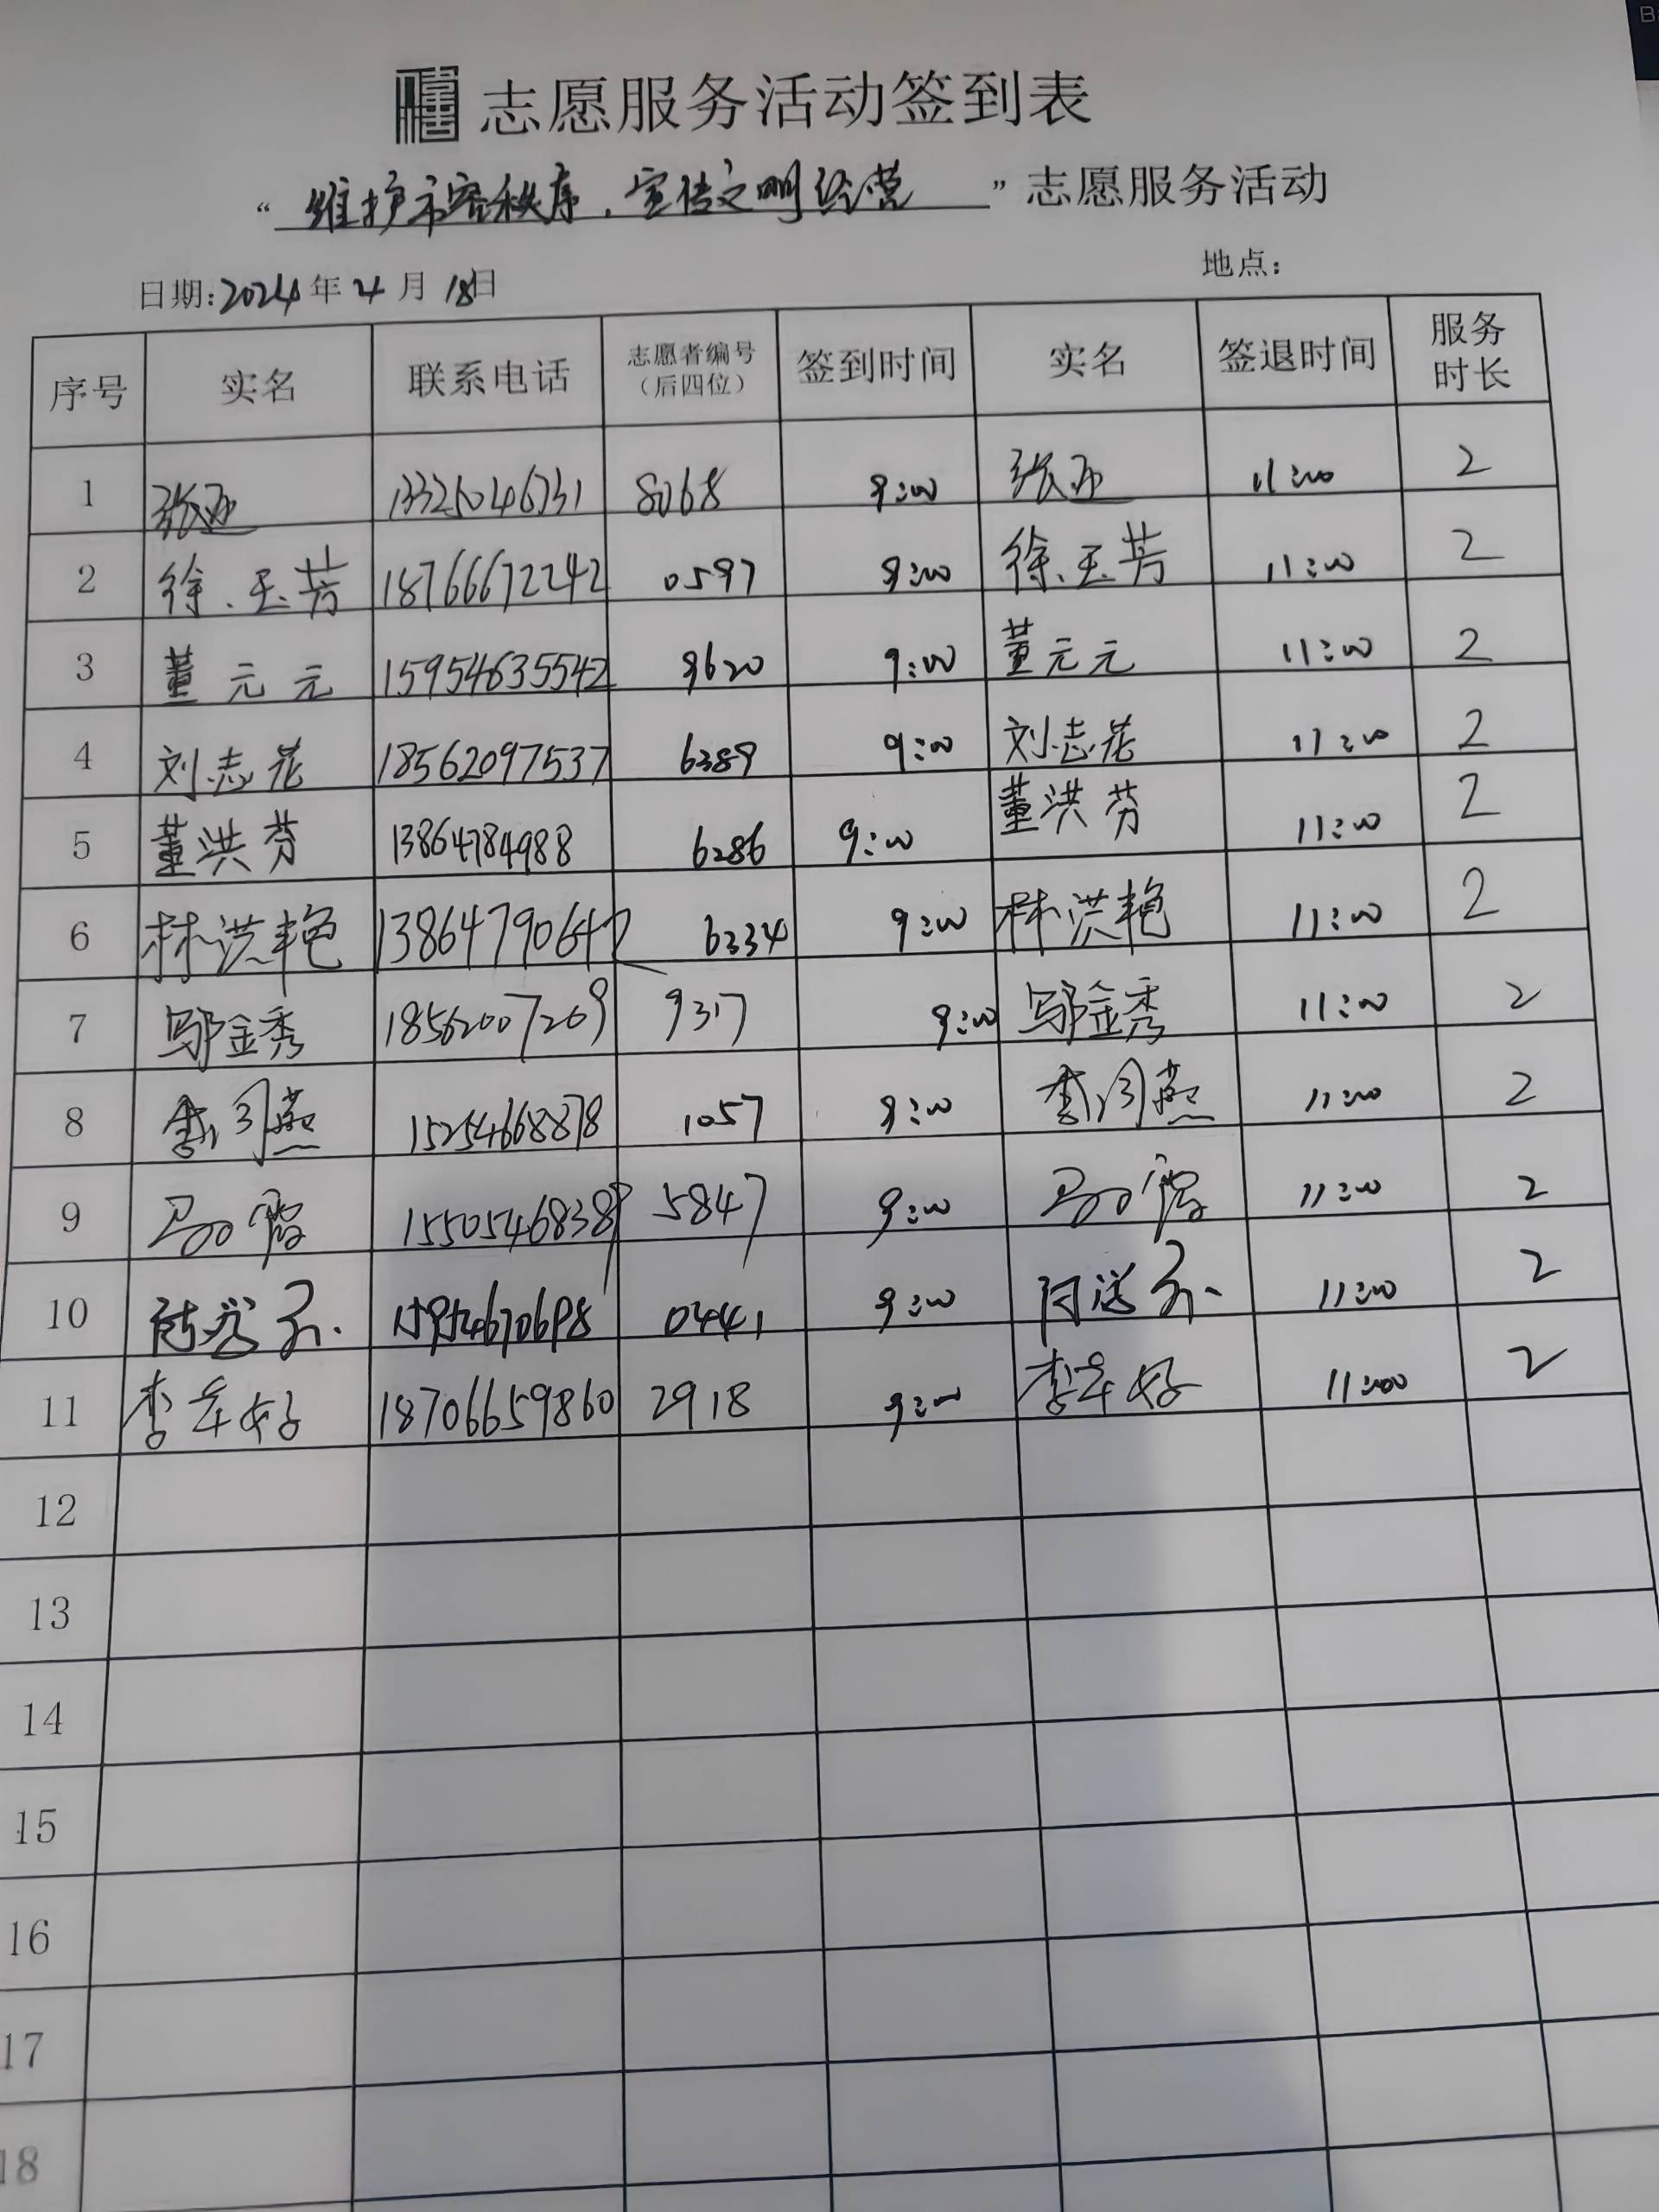 志愿服务活动签到表
“维护市容秩序,宣传文明经营”志愿服务活动
日期:2024年4月18日 地点:
序号 实名 联系电话 志愿者编号(后四位) 签到时间 实名 签退时间 服务时长
1 张亚 13325046731 8068 9:00 张亚 11:00 2
2 徐玉芳 18766672242 0597 9:00 徐玉芳 11:00 2
3 董元元 15954635542 9620 9:00 董元元 11:00 2
4 刘志花 18562097537 6389 9:00 刘志花 11:00 2
5 董洪芬 13864784988 6286 9:00 董洪芬 11:00 2
6 林洪艳 13864790642 6334 9:00 林洪艳 11:00 2
7 邬金秀 18562007269 9317 9:00 邬金秀 11:00 2
8 李 燕 15254668878 1057 9:00 李 燕 11:00 2
9 马 霞 15505468389 5847 9:00 马 霞 11:00 2
10 0441 9:00 11:00 2
11 李 好 18706659860 2918 9:00 李 好 11:00 2
12
13
14
15
16
17
18